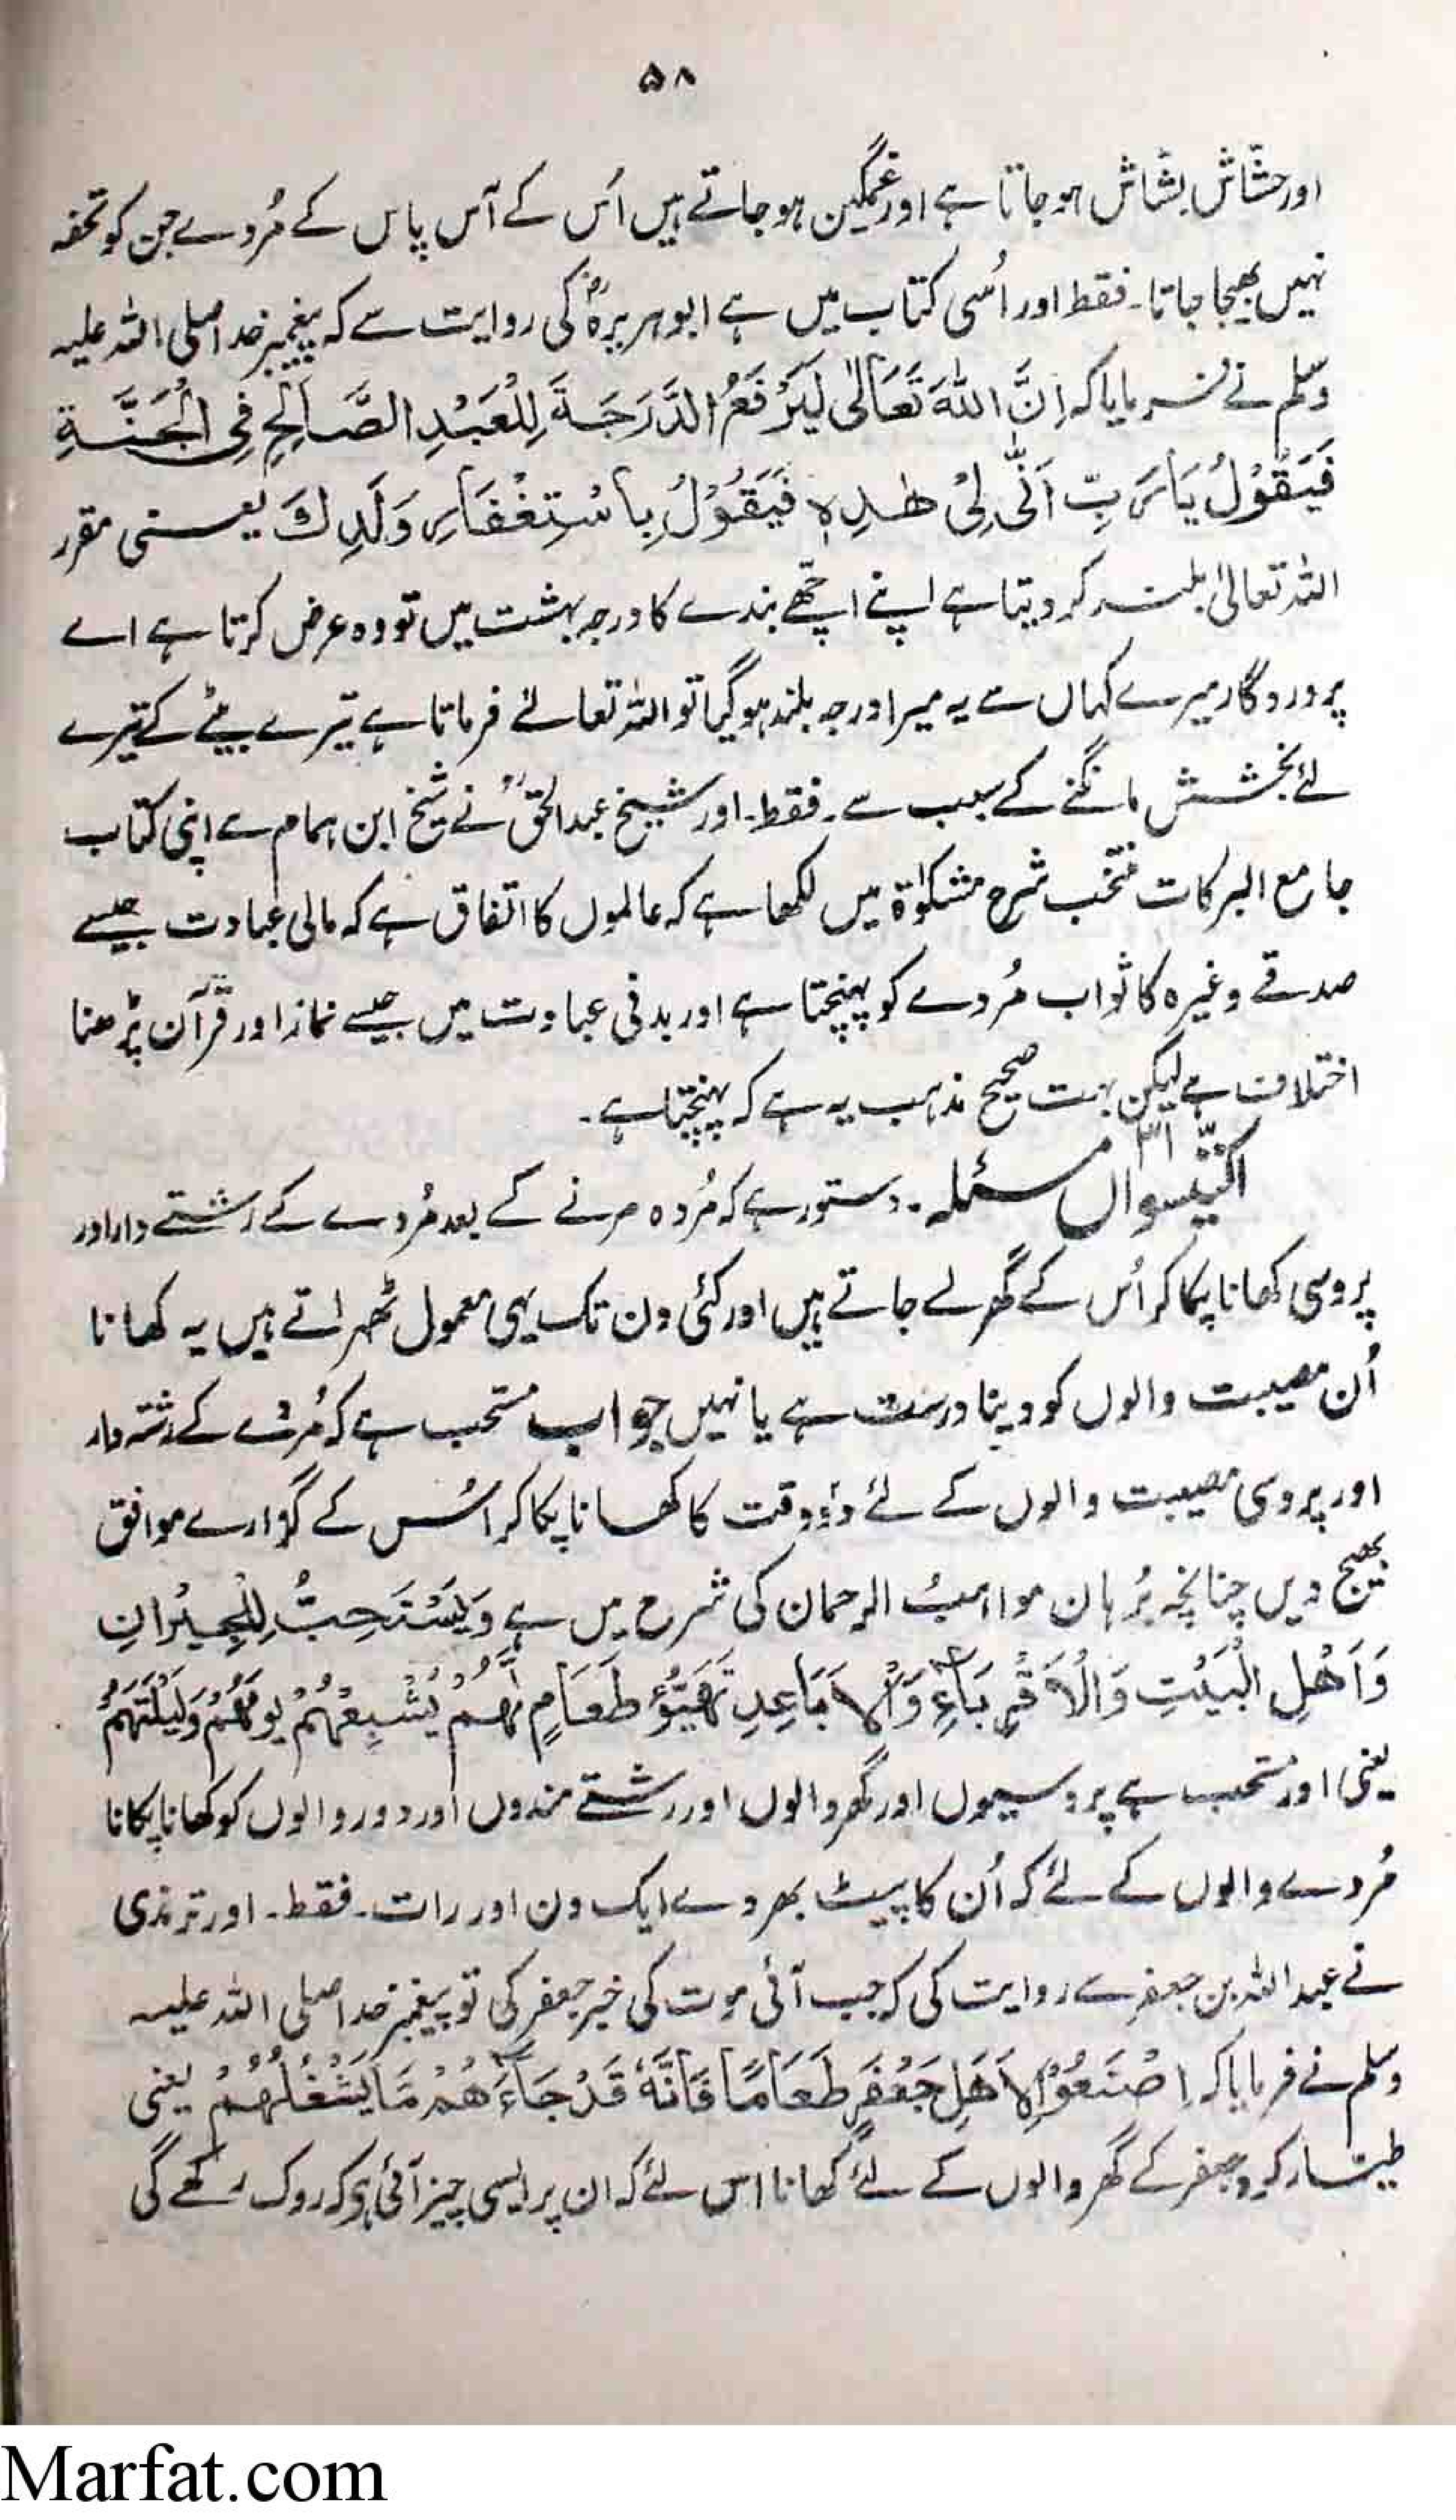 ۵۸
اور حشّاش بشاش ہو جاتا ہے اور غمگین ہو جاتے ہیں اُس کے آس پاس کے مُردے جن کو تحفہ
نہیں بھیجا جاتا۔ فقط اور اُسی کتاب میں ہے ابوہریرہؓ کی روایت سے کہ پیغمبر خدا صلی اللہ علیہ
وسلم نے فرمایا کہ اِنَّ اللّٰہَ تَعَالٰی لَیَرْفَعُ الدَّرَجَۃَ لِلْعَبْدِ الصَّالِحِ فِی الْجَنَّۃِ
فَیَقُوْلُ یَا رَبِّ اَنّٰی لِیْ ھٰذِہٖ فَیَقُوْلُ بِاسْتِغْفَارِ وَلَدِكَ یعنی مقرر
اللہ تعالیٰ بلند کر دیتا ہے اپنے اچّھے بندے کا درجہ بہشت میں تو وہ عرض کرتا ہے اے
پروردگار میرے کہاں سے یہ میرا درجہ بلند ہو گیا تو اللہ تعالےٰ فرماتا ہے تیرے بیٹے کے تیرے
لئے بخشش مانگنے کے سبب سے۔ فقط۔ اور شیخ عبدالحقؒ نے شیخ ابن ہمام سے اپنی کتاب
جامع البرکات منتخب شرح مشکوٰۃ میں لکھا ہے کہ عالموں کا اتفاق ہے کہ مالی عبادت جیسے
صدقے وغیرہ کا ثواب مُردے کو پہنچتا ہے اور بدنی عبادت میں جیسے نماز اور قرآن پڑھنا
اختلاف ہے لیکن بہت صحیح مذہب یہ ہے کہ پہنچتا ہے۔
اکتّیسواں ۳۱ مسئلہ۔ دستور ہے کہ مُردہ مرنے کے بعد مُردے کے رشتے دار اور
پروسی کھانا پکا کر اُس کے گھر لے جاتے ہیں اور کئی دن تک یہی معمول ٹھہراتے ہیں یہ کھانا
اُن مصیبت والوں کو دینا درست ہے یا نہیں جواب مستحب ہے کہ مُردے کے رشتہ دار
اور پروسی مصیبت والوں کے لئے دو وقت کا کھانا پکا کر اُس کے گوارے موافق
بھیج دیں چنانچہ بُرہان مواہبُ الرحمان کی شرح میں ہے وَیَسْتَحِبُّ لِلْجِیْرَانِ
وَاَھْلِ الْبَیْتِ وَالْاَقْرِبَاءِ وَالْاَبَاعِدِ تَھَیُّؤُ طَعَامٍ لَّھُمْ یُشْبِعُھُمْ یَوْمَھُمْ وَلَیْلَتَھُمْ
یعنی اور مستحب ہے پروسیوں اور گھر والوں اور رشتے مندوں اور دور والوں کو کھانا پکانا
مُردے والوں کے لئے کہ اُن کا پیٹ بھر دے ایک دن اور رات۔ فقط۔ اور ترمذی
نے عبداللہ بن جعفر سے روایت کی کہ جب آئی موت کی خبر جعفر کی تو پیغمبر خدا صلی اللہ علیہ
وسلم نے فرمایا کہ اِصْنَعُوْا لِاَھْلِ جَعْفَرٍ طَعَامًا فَاِنَّہٗ قَدْ جَآءَھُمْ مَا یَشْغَلُھُمْ یعنی
طیار کرو جعفر کے گھر والوں کے لئے کھانا اس لئے کہ ان پر ایسی چیز آئی ہو کہ روک رکھے گی
Marfat.com